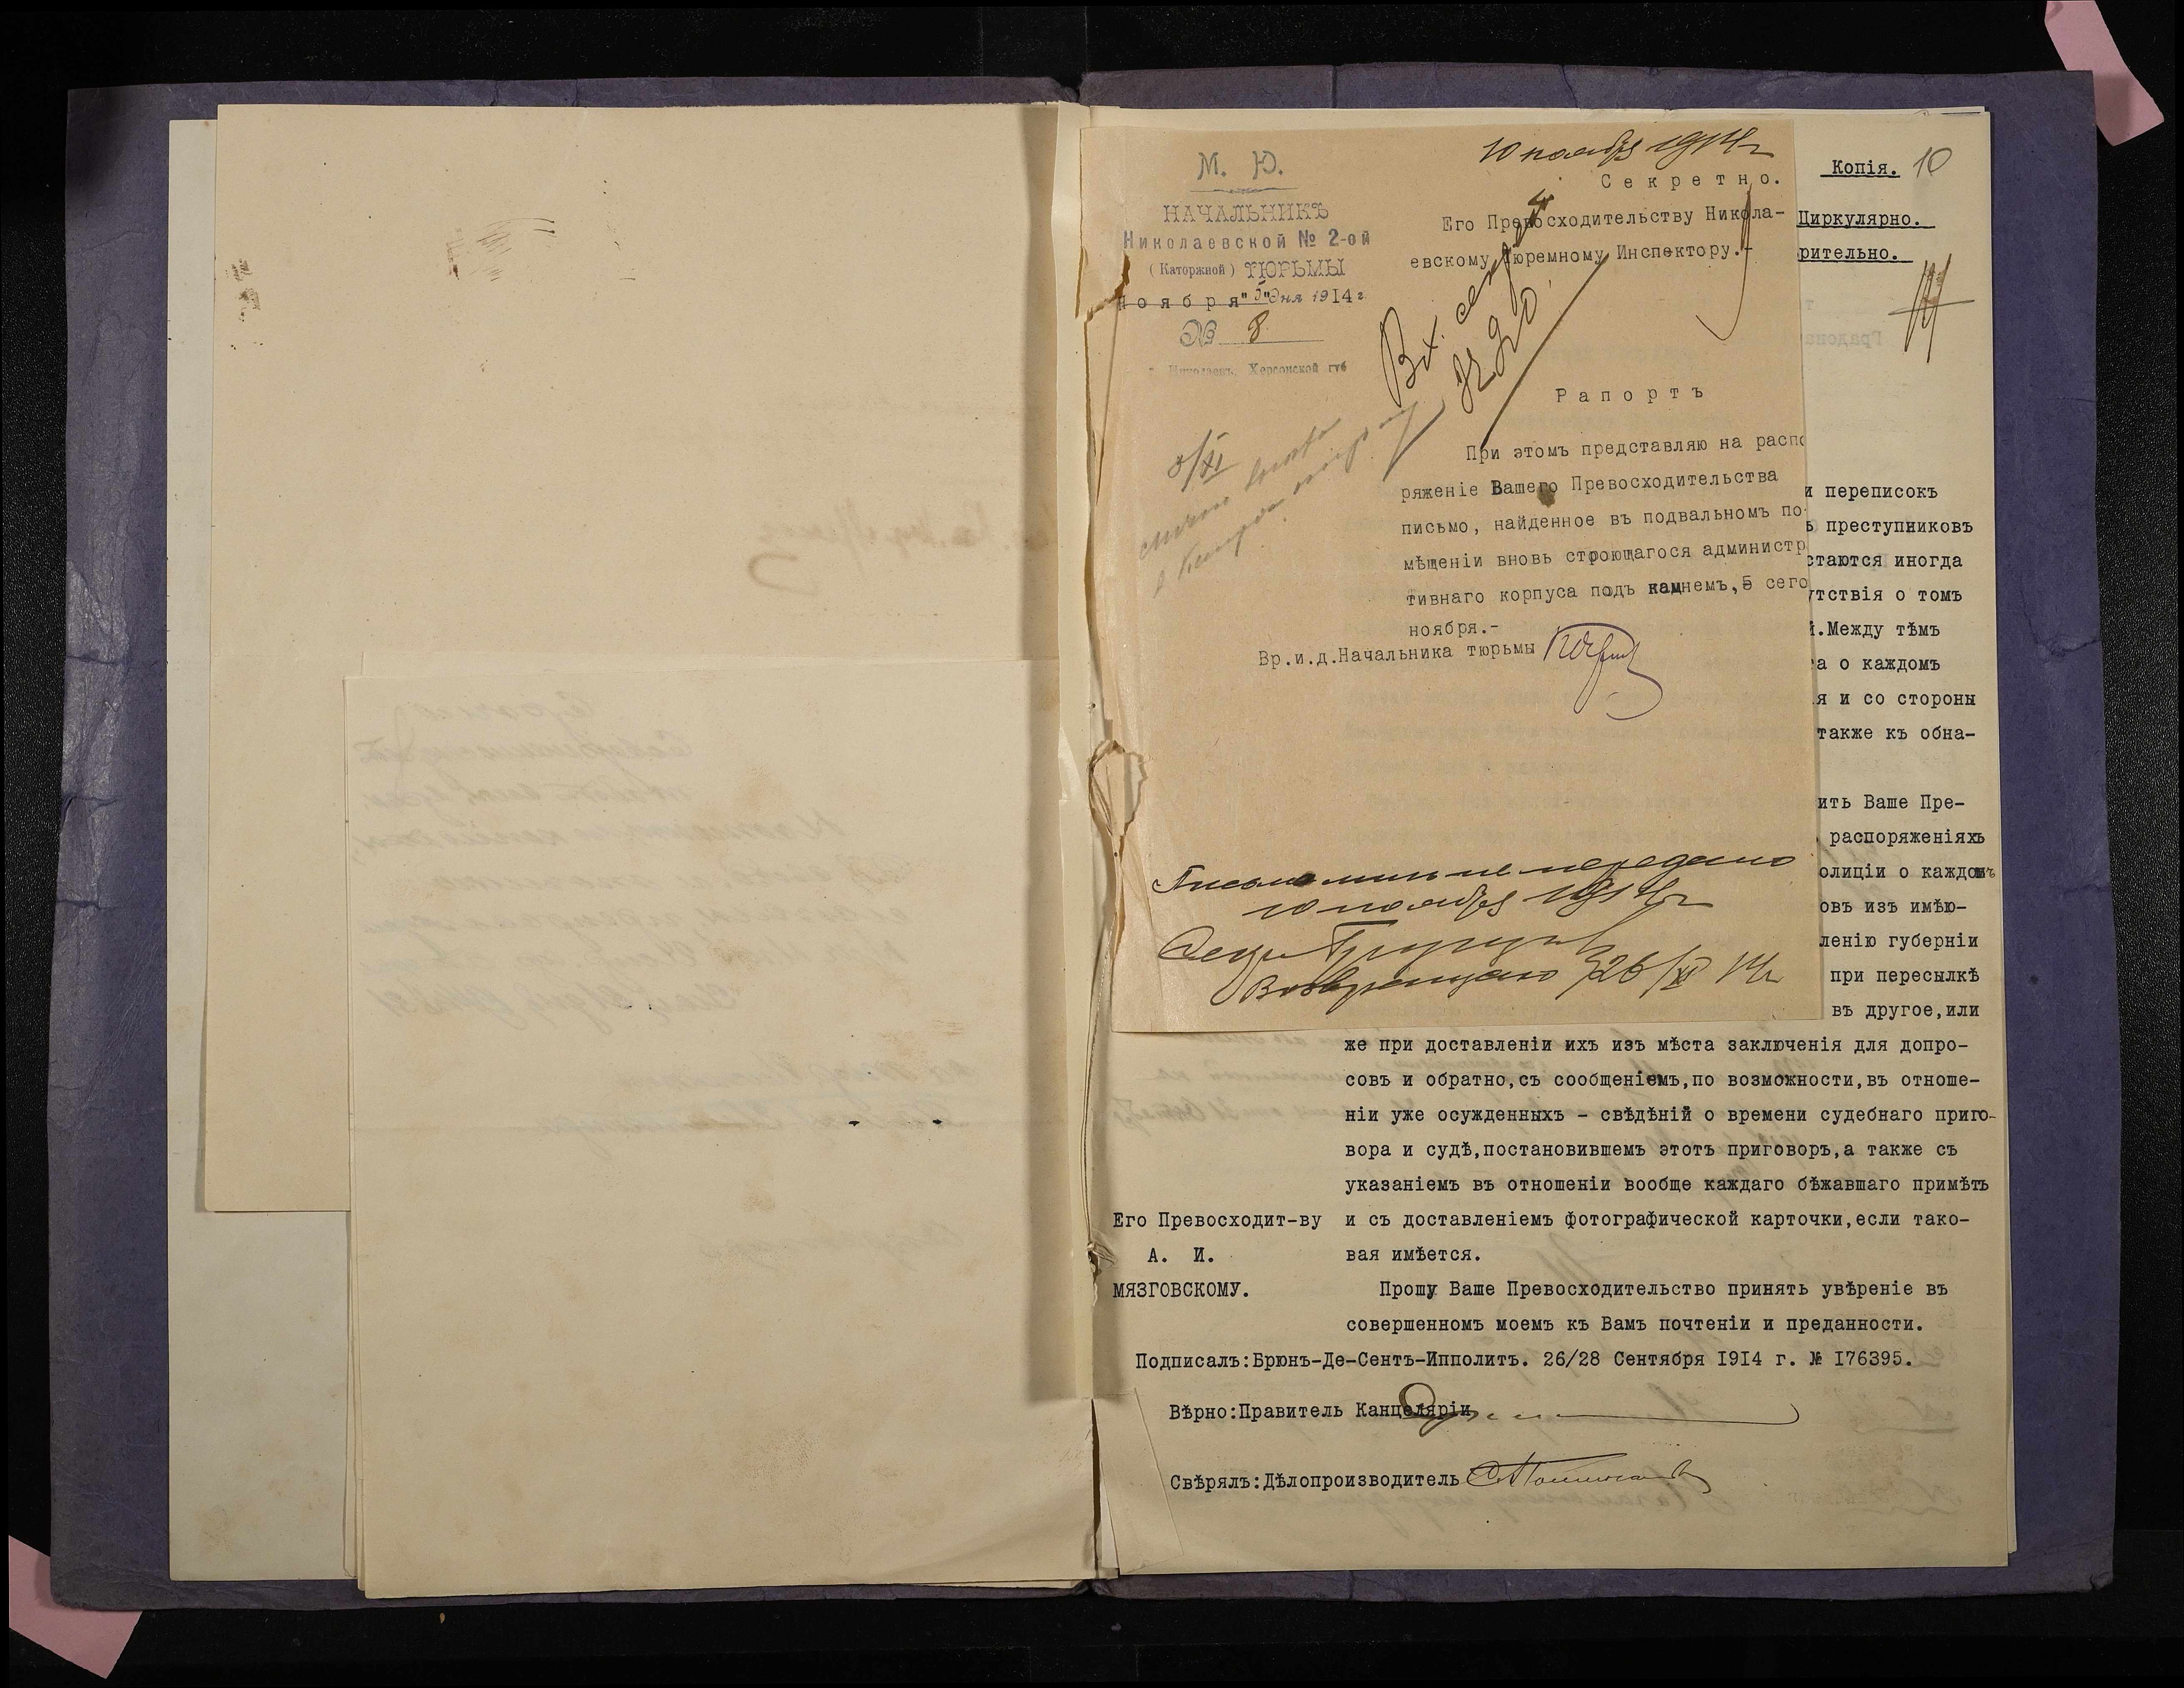 М. Ю.
НАЧАЛЬНИКЪ
Николаевской № 2-ой
(Каторжной) ТЮРЬМЫ
Ноября "5" дня 1914 г
№ 8
Николаевъ, Херсонской губ
10 ноября 1914 г
Секретно.
Его Превосходительству Никола-
евскому Тюремному Инспектору.-
Вх.
5/XI
Рапортъ
При этомъ представляю на распо
ряженіе Вашего Превосходительства
письмо, найденное въ подвальномъ по-
мѣщеніи вновь строющагося администр
тивнаго корпуса подъ камнемъ, 5 сего
ноября.-
Вр.и.д.Начальника тюрьмы
Письмо мин не передано
10 ноября 1914 г
Возвращено 26/XI 14 г
Копія. 10
Циркулярно.
рительно.
и переписокъ
ъ преступниковъ
стаются иногда
утствія о томъ
й.Между тѣмъ
та о каждомъ
ія и со стороны
также къ обна-
ить Ваше Пре-
распоряженіяхъ
олиціи о каждомъ
овъ изъ имѣю-
ленію губерніи
при пересылкѣ
въ другое,или
же при доставленіи ихъ изъ мѣста заключенія для допро-
совъ и обратно,съ сообщеніемъ,по возможности,въ отноше-
ніи уже осужденныхъ - свѣдѣній о времени судебнаго приго-
вора и судѣ,постановившемъ этотъ приговоръ,а также съ
указаніемъ въ отношеніи вообще каждаго бѣжавшаго примѣтъ
и съ доставленіемъ фотографической карточки,если тако-
вая имѣется.
Его Превосходит-ву
А. И.
МЯЗГОВСКОМУ.
Прошу Ваше Превосходительство принять увѣреніе въ
совершенномъ моемъ къ Вамъ почтеніи и преданности.
Подписалъ:Брюнъ-Де-Сентъ-Ипполитъ. 26/28 Сентября I9I4 г. № I76395.
Вѣрно:Правитель Канцеляріи
Свѣрялъ:Дѣлопроизводитель